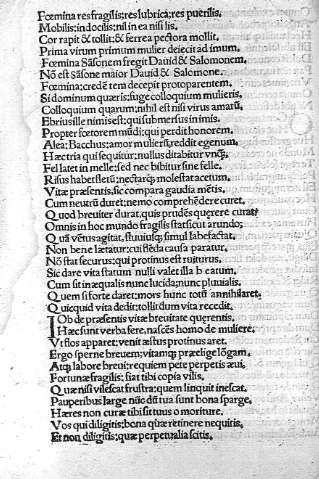 Fœmina res fragilis; res lubrica; res puerilis.
Mobilis; indocilis; nil in ea nisi lis.
Cor rapit & tollit: & ferrea pectora mollit.
Prima virum primum mulier deiecit ad imum.
Fœmina Sãsonem fregit Dauid & Salomonem.
Nõ est Sãsone maior Dauid & Salomone.
Fœmina; credẽ tem decepit protoparentem.
Si dominum quæris; fuge colloquium mulieris.
Colloquium quarum; nihil est nisi virus amarũ.
Ebrius ille nimis est; qui submersus in imis.
Propter fœtorem mũdi; qui perdit honorem.
Alea; Bacchus; amor mulierũ; reddit egenum.
Hæc tria qui sequitur; nullus ditabitur vnq̃.
Fel latet in melle; sed nec bibitur sine felle.
Risus habet fletũ; nectarq; molestat acetum.
Vitæ præsentis, sic compara gaudia mẽtis.
Cum neutrũ duret; nemo comprehẽdere curet.
Quod breuiter durat, quis prudẽs quęrere curat?
Omnis in hoc mundo fragilis stat sicut arundo;
Quã vẽtus agitat, fluuiusq; simul labefactat.
Non bene lætatur; cui flẽda causa paratur,
Nõ stat securus; qui protinus est ruiturus.
Sic dare vita statum nulli valet illa b eatum.
Cum sit in æqualis nunc lucida; nunc pluuialis.
Quem si forte daret; mors hunc totũ annihilaret.
Quicquid vita dedit; tollit dum vita recedit.
IOb de præsentis vitæ breuitate quęrentis.
Hæc sunt verba fere, nascẽs homo de muliere.
Vt flos apparet; venit æstus protinus aret.
Ergo sperne breuem; vitamq; præelige lõgam.
Atq; labore breui; requiem pete perpetis æui,
Fortunæ fragilis; fiat tibi copia vilis,
Quæ res vilescat frustra; quem linquit inescat.
Pauperibus large nũc dũ tua sunt bona sparge.
Hæres non curæ tibi sit tuus o moriture.
Vos qui diligitis; bona quæ retinere nequitis,
Et non diligitis; quæ perpetualia scitis,